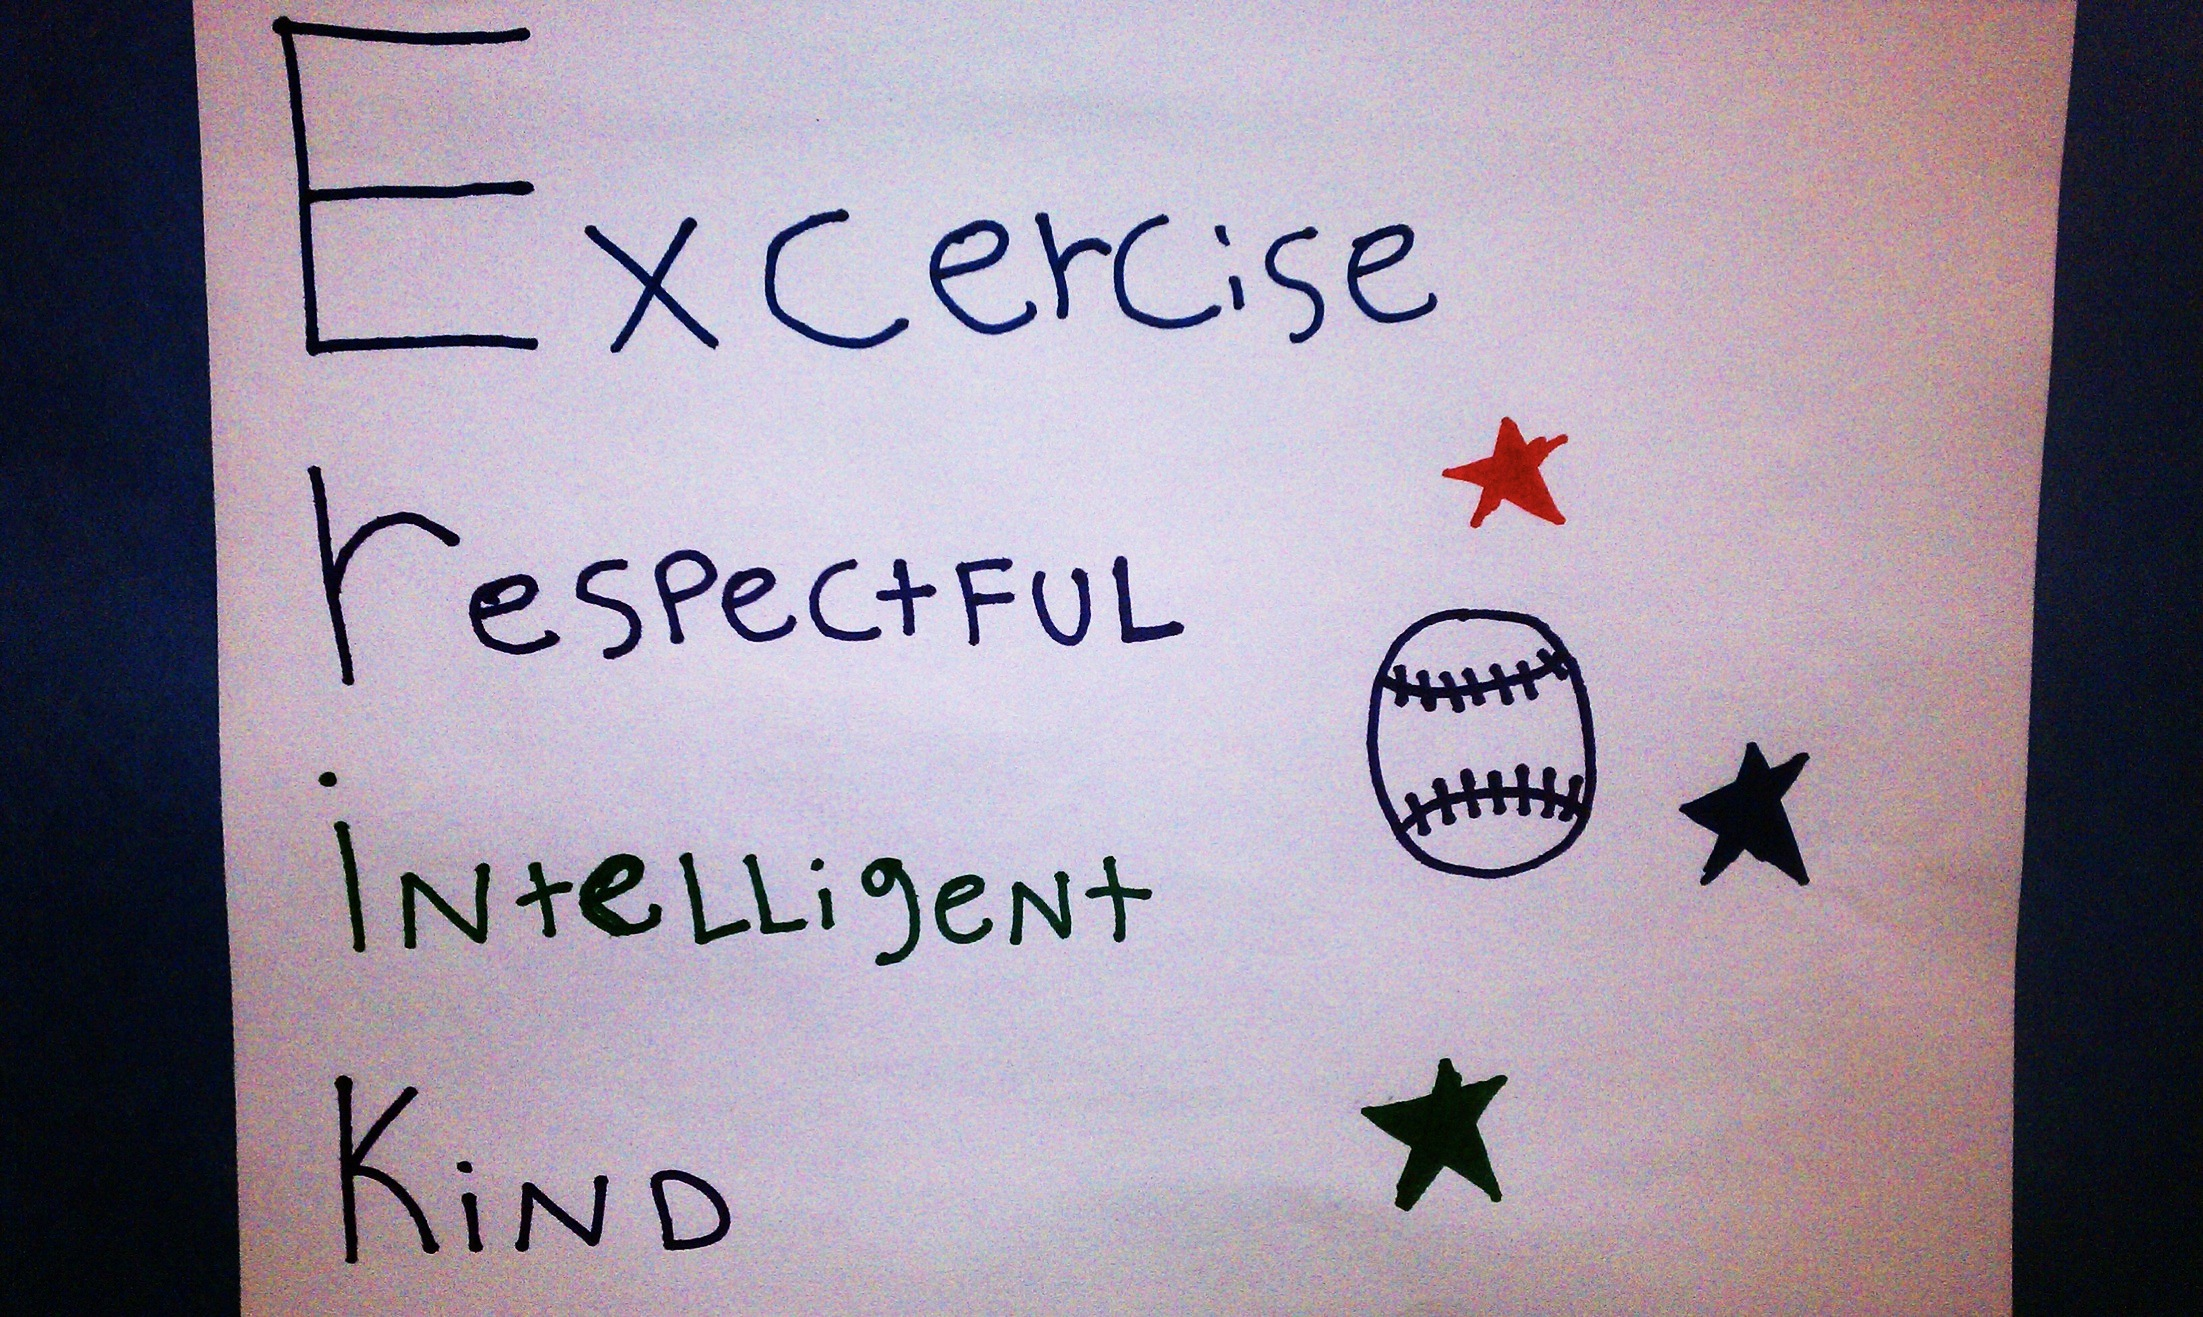 Excercise
respectFUL
intelligent
KiND